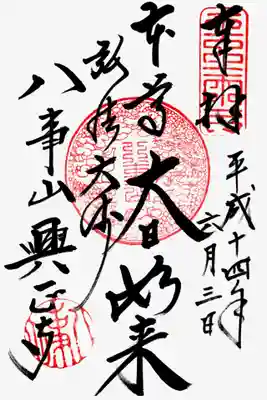 奉拝
平成十四年
六月三日
本尊 大日如来
弘法大师
八事山 興正寺